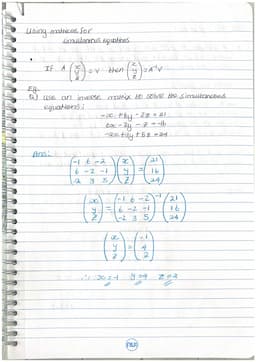 Using matrices for
simultaneous equations
If A (x y z) = v then (x y z) = A⁻¹v
Eg-
a) use an inverse matrix to solve the simultaneous
equations:
-x + 6y - 2z = 21
6x - 2y - z = -16
-2x + 3y + 5z = 24
Ans:
(-1 6 -2 / 6 -2 -1 / -2 3 5) (x y z) = (21 16 24)
(x y z) = (-1 6 -2 / 6 -2 -1 / -2 3 5)⁻¹ (21 16 24)
(x y z) = (-1 4 2)
∴ x=-1 y=4 z=2